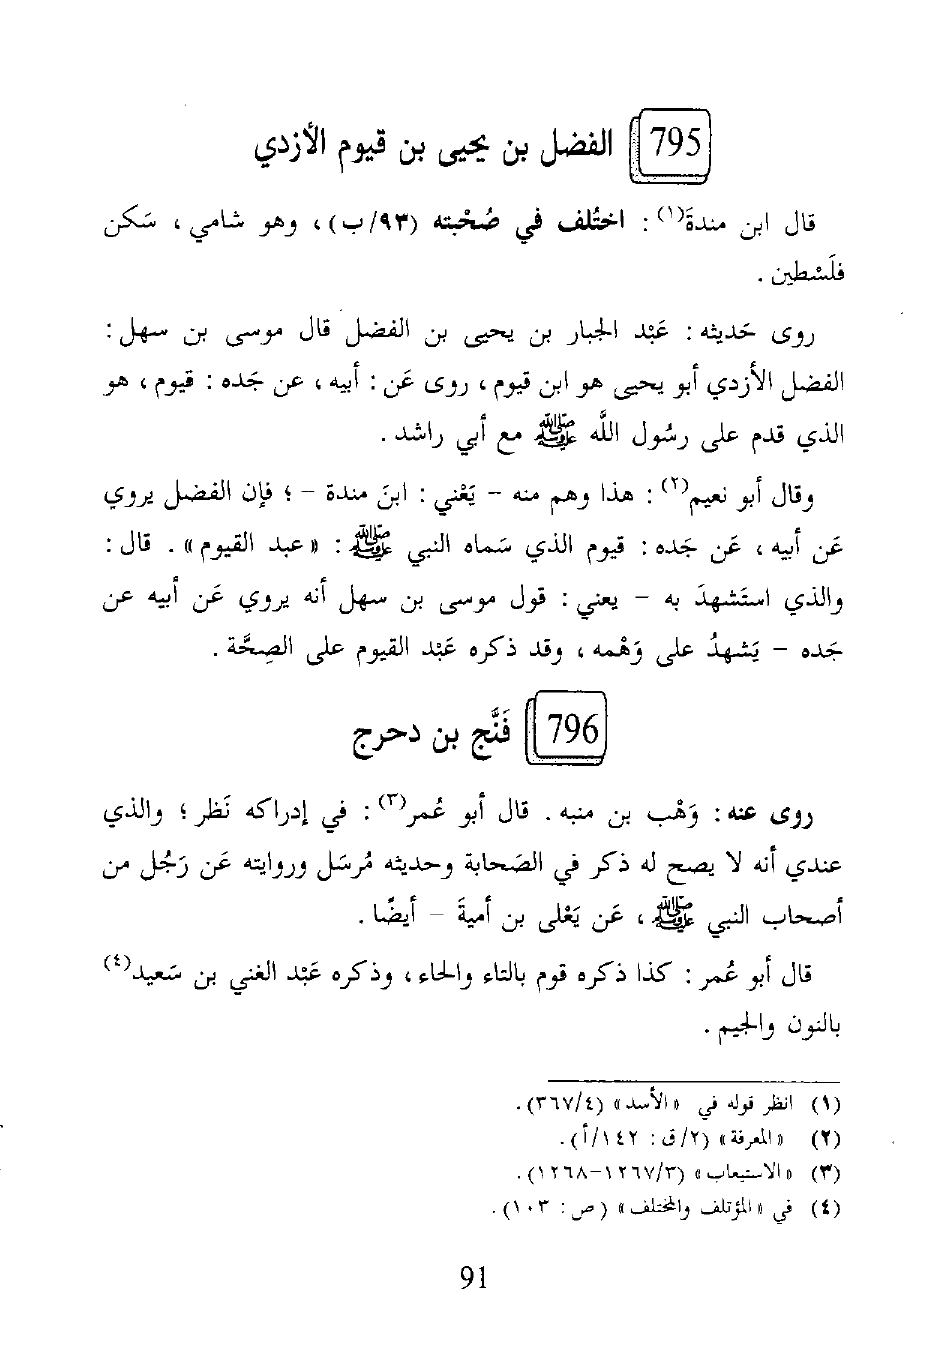 795 الفضل بن يحيى بن قيوم الأزدي
قال ابن مندةَ(١) : اختُلف في صُحْبته (٩٣/ب) ، وهو شامي ، سَكن
فلَسْطين .
روى حَديثه : عَبْد الجبار بن يحيى بن الفضل قال موسى بن سهل :
الفضل الأزدي أبو يحيى هو ابن قيوم ، روى عَن : أبيه ، عن جَده : قيوم ، هو
الذي قدم على رسُول اللَّه ﷺ مع أبي راشد .
وقال أبو نعيم(٢) : هذا وهم منه – يَعْني : ابنَ مندة – ؛ فإن الفضل يروي
عَن أبيه ، عَن جَده : قيوم الذي سَماه النبي ﷺ : «عبد القيوم» . قال :
والذي استَشهدَ به – يعني : قول موسى بن سهل أنه يروي عَن أبيه عن
جَده – يَشهدُ على وَهْمه ، وقد ذكره عَبْد القيوم على الصِحَّة .
796 فَنَّج بن دحرج
روى عنه : وَهْب بن منبه . قال أبو عُمر(٣) : في إدراكه نَظر ؛ والذي
عندي أنه لا يصح له ذكر في الصَحابة وحديثه مُرسَل وروايته عَن رَجُل من
أصحاب النبي ﷺ ، عَن يَعْلى بن أميةَ – أيضًا .
قال أبو عُمر : كذا ذكره قوم بالتاء والحاء ، وذكره عَبْد الغني بن سَعيد(٤)
بالنون والجيم .
(١) انظر قوله في «الأسد» (٣٦٧/٤) .
(٢) «المعرفة» (٢/ق : ١٤٢/أ) .
(٣) «الاستيعاب» (١٢٦٧/٣–١٢٦٨) .
(٤) في «المؤتلف والمختلف» (ص : ١٠٣) .
91